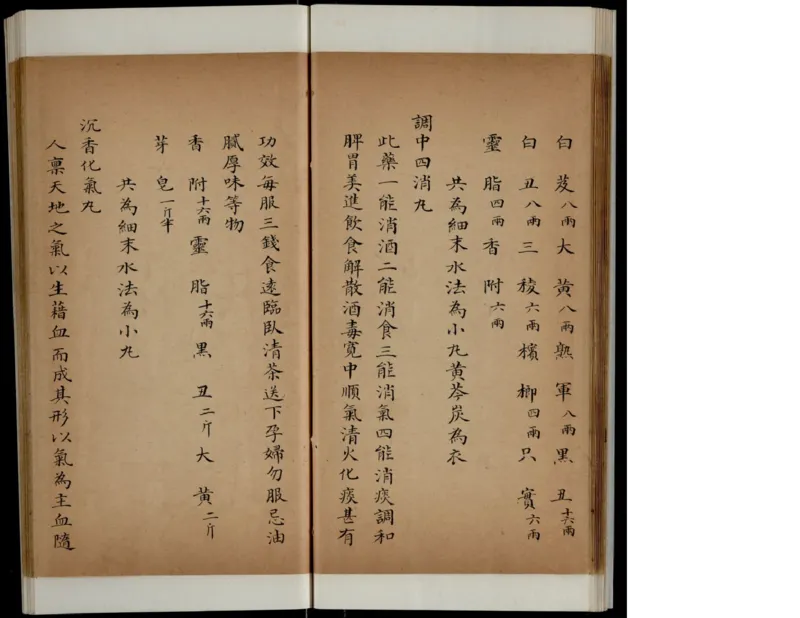 白芨八兩大黃八兩熟軍八兩黑丑十六兩
白丑八兩三稜六兩檳榔四兩只實六兩
靈脂四兩香附六兩
共為細末水法為小丸黃芩炭為衣
調中四消丸
此藥一能消酒二能消食三能消氣四能消痰調和
脾胃美進飲食解散酒毒寬中順氣清火化痰甚有
功效每服三錢食遠臨臥清茶送下孕婦勿服忌油
膩厚味等物
香附十六兩靈脂十六兩黑丑二斤大黃二斤
芽皂一斤半
共為細末水法為小丸
沉香化氣丸
人稟天地之氣以生藉血而成其形以氣為主血隨